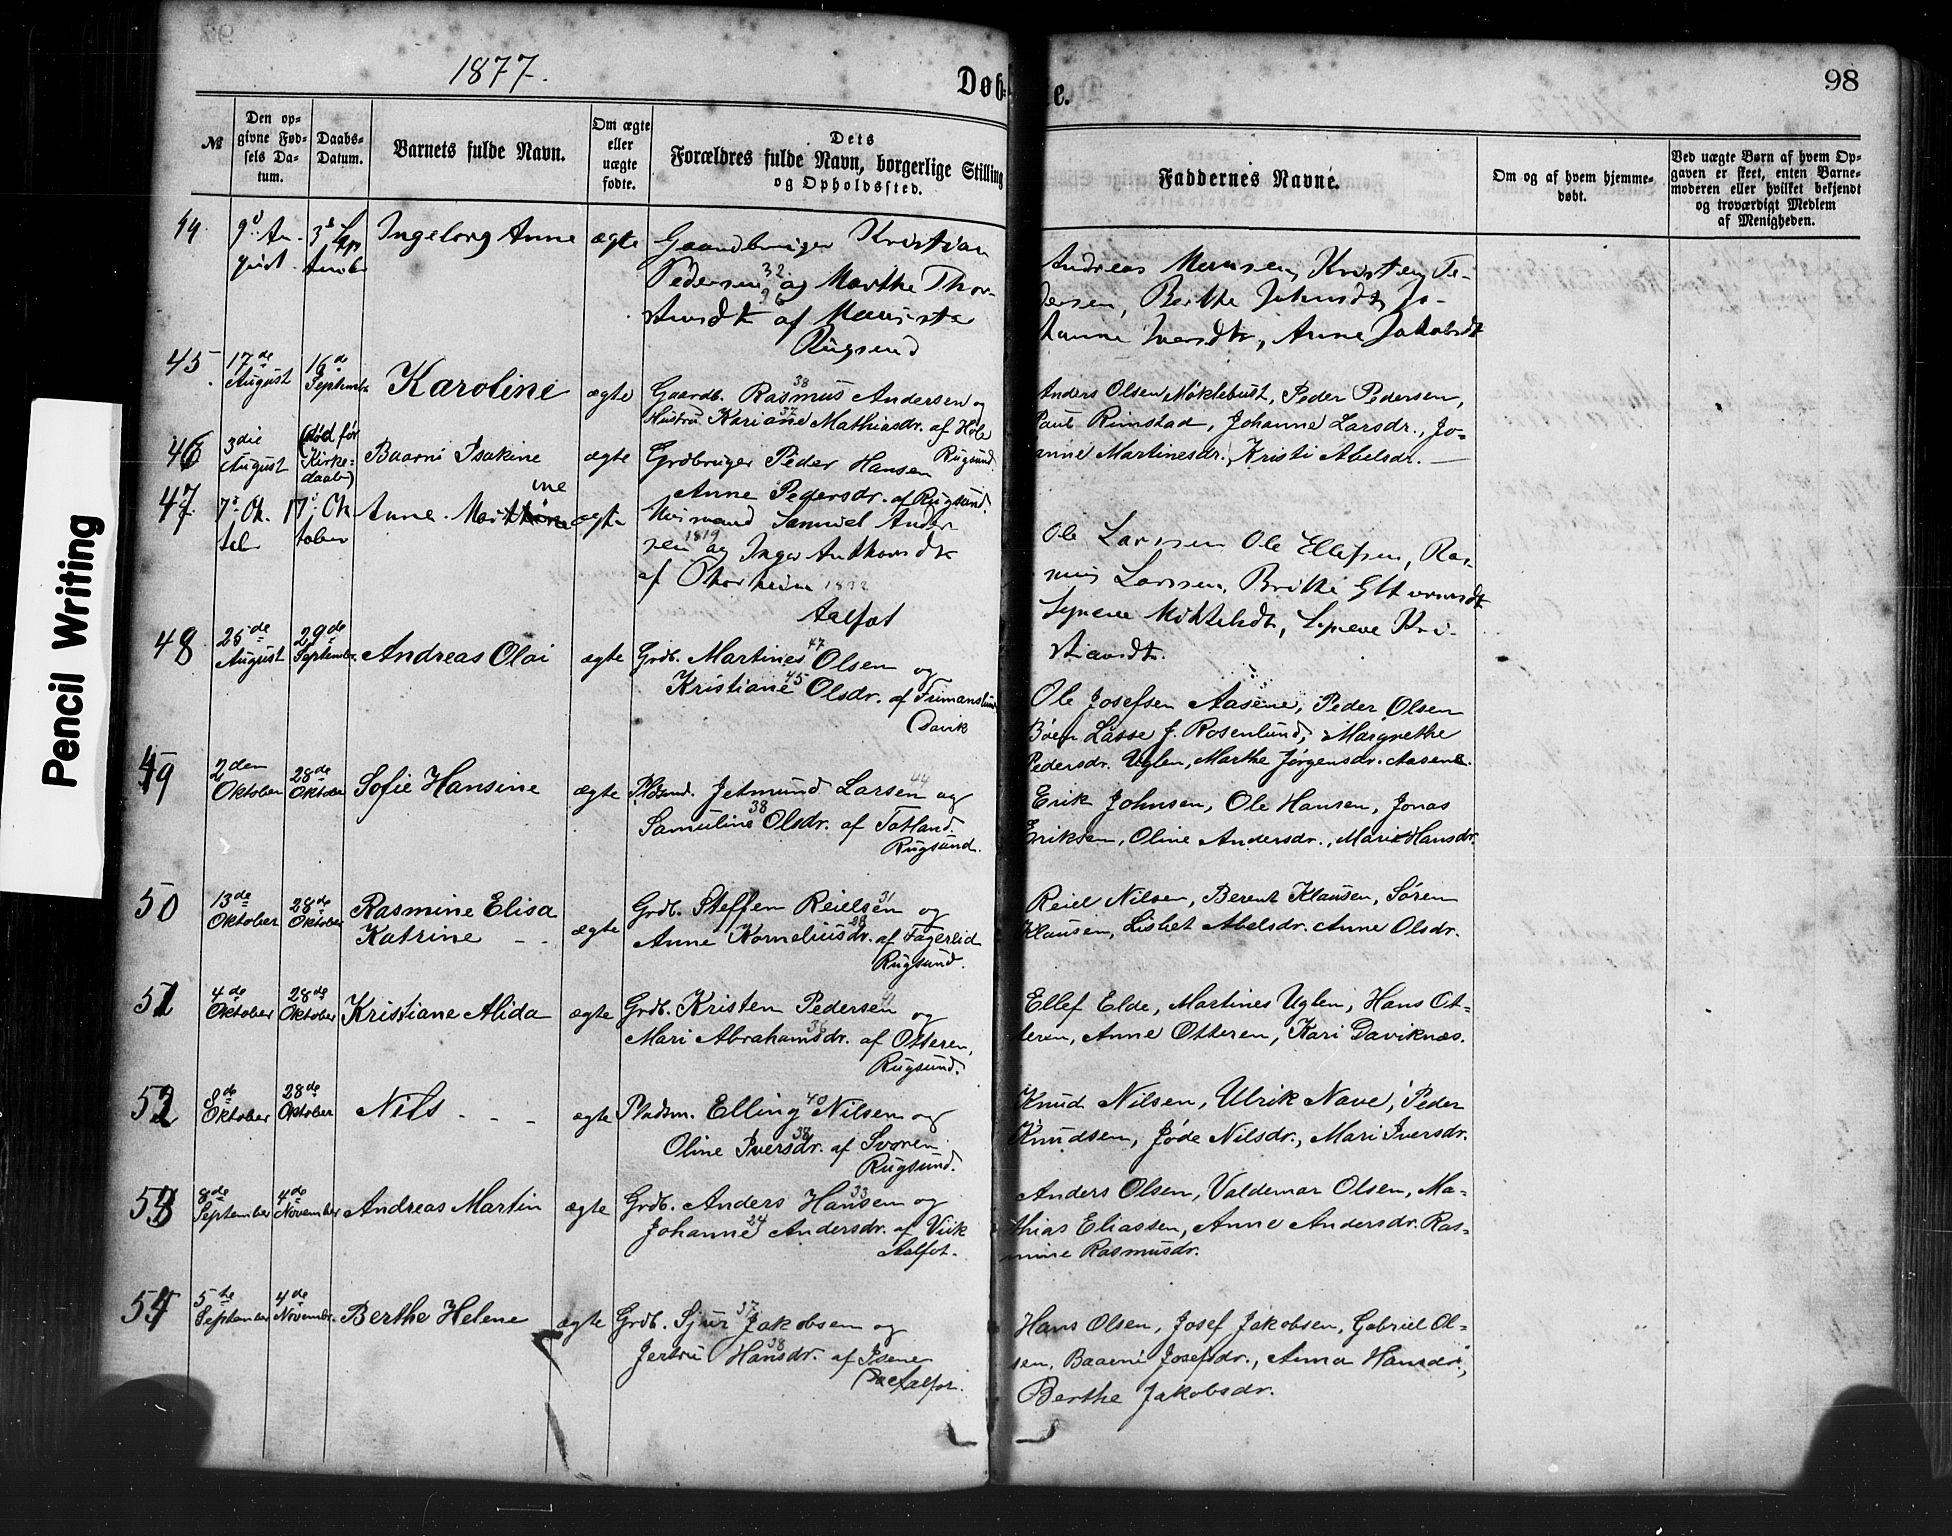 1877.
Døb-
e.
98
№
Den op-
givne Fød-
sels Da-
tum.
Daabs-
Datum.
Barnets fulde Navn.
Om ægte
eller
uægte
fødte.
Dets
Forældres fulde Navn, borgerlige Stilling
og Opholdssted.
Faddernes Navne.
Om og af hvem hjemme-
døbt.
Ved uægte Børn af hvem Op-
gaven er skeet, enten Barne-
moderen eller hvilket bekjendt
og troværdigt Medlem
af Menigheden.
Pencil Writing
44
9d Au-
gust
3d Sep
tember
Ingeborg Anne
ægte
Gaardbruger Kristian
Pedersen 32 og Marthe Thor-
26
af
Rugsund
Andreas Monsen, Kristen Pe-
dersen, Berthe Johnsdtr, Jo-
hanne Iversdtr, Anne Jakobsdt
45
17de
August
16de
Septembr
Karoline
ægte
Gaardb. Rasmus 38 Andersen og
Hustru Kariane 37 Mathiasdr. af Hole
Rugsund
Anders Olsen Møklebust, Peder Pedersen,
Paul Rimstad, Johanne Larsdr., Jo-
anne Martinesdr., Kristi Abelsdr. —
46
3die
August
(død før
Kirke-
daaben)
Baarni Isakine
ægte
Grdbruger Peder Hansen
Anne Pedersdr. af Rugsund.
47
7d Ok
tob
17d Ok
tober
Anne Marthine
ægte
Huusmand Samuel Ander
sen 1819 og Inger Anthonsdtr
af 1832
Aalfot
Ole Larssen Ole Ellefsen, Ras-
mus Larssen, Brithe
Synneve Mikkelsdtr, Synneve Kri-
stiansdtr.
48
25de
August
29de
Septembr.
Andreas Olai
ægte
Grdb. Martines 47 Olsen og
Kristiane 45 Olsdr. af Frimanslund
Davik
Ole Josefsen Aasene, Peder Olsen
Bøen Lasse J. Rosenlund, Margrethe
Pedersdr. Uglen, Marthe Jørgensdr. Aasene.
49
2den
Oktober
28de
Oktober
Sofie Hansine
ægte
Jetmund Larsen 44 og
Samuline 38 Olsdr. af Totland.
Rugsund.
Erik Johnsen, Ole Hansen, Jonas
Eriksen, Oline Andersdr., Marie Hansdr.
50
13de
Oktober
28de
Oktober
Rasmine Elisa
Katrine - -
ægte
Grdb. Steffen Reielsen 31 og
Anne Korneliusdr. af Fagerlid
Rugsund.
Reiel Nilsen, Berent Klausen, Søren
Klausen, Lisbet Abelsdr. Anne Olsdr.
51
4de
Oktober
28de
Oktober
Kristiane Alida
ægte
Grdb. Kristen Pedersen 41 og
Mari Abrahamsdr. 36 af Otteren,
Rugsund.
Ellef Elde, Martines Uglen, Hans Ot-
teren, Anne Otteren, Kari Daviknæs.
52
8de
Oktober
28de
Oktober
Nils - - -
ægte
Pladsm. Elling 40 Nilsen og
Oline Iversdr. 38 af Svoren
Rugsund.
Knud Nilsen, Ulrik Nave, Peder
Knudsen, Jøde Nilsdr., Mari Iversdr.
53
8de
September
4de
November
Andreas Martin
ægte
Grdb. Anders Hansen 33 og
Johanne 24 Andersdr. af Viik
Aalfot.
Anders Olsen, Valdemar Olsen, Ma-
thias Eliassen, Anne Andersdr. Ras-
mine Rasmusdr.
54
5te
September
4de
Novembr.
Berthe Helene
ægte
Grdb. Sjur 37 Jakobsen og
Jertru Hansdr. 38 af Isene
Aalfot.
Hans Olsen, Josef Jakobsen, Gabriel Ol-
sen, Baarni Josefsdr., Anna Hansdr.,
Berthe Jakobsdr.